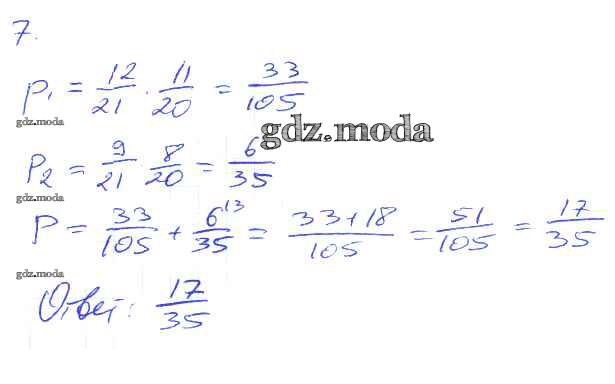 7.
P₁ = 12/21 · 11/20 = 33/105
gdz.moda
gdz.moda
P₂ = 9/21 · 8/20 = 6/35
gdz.moda
P = 33/105 + 6/35 ⁽³ = 33+18/105 = 51/105 = 17/35
gdz.moda
Ответ: 17/35